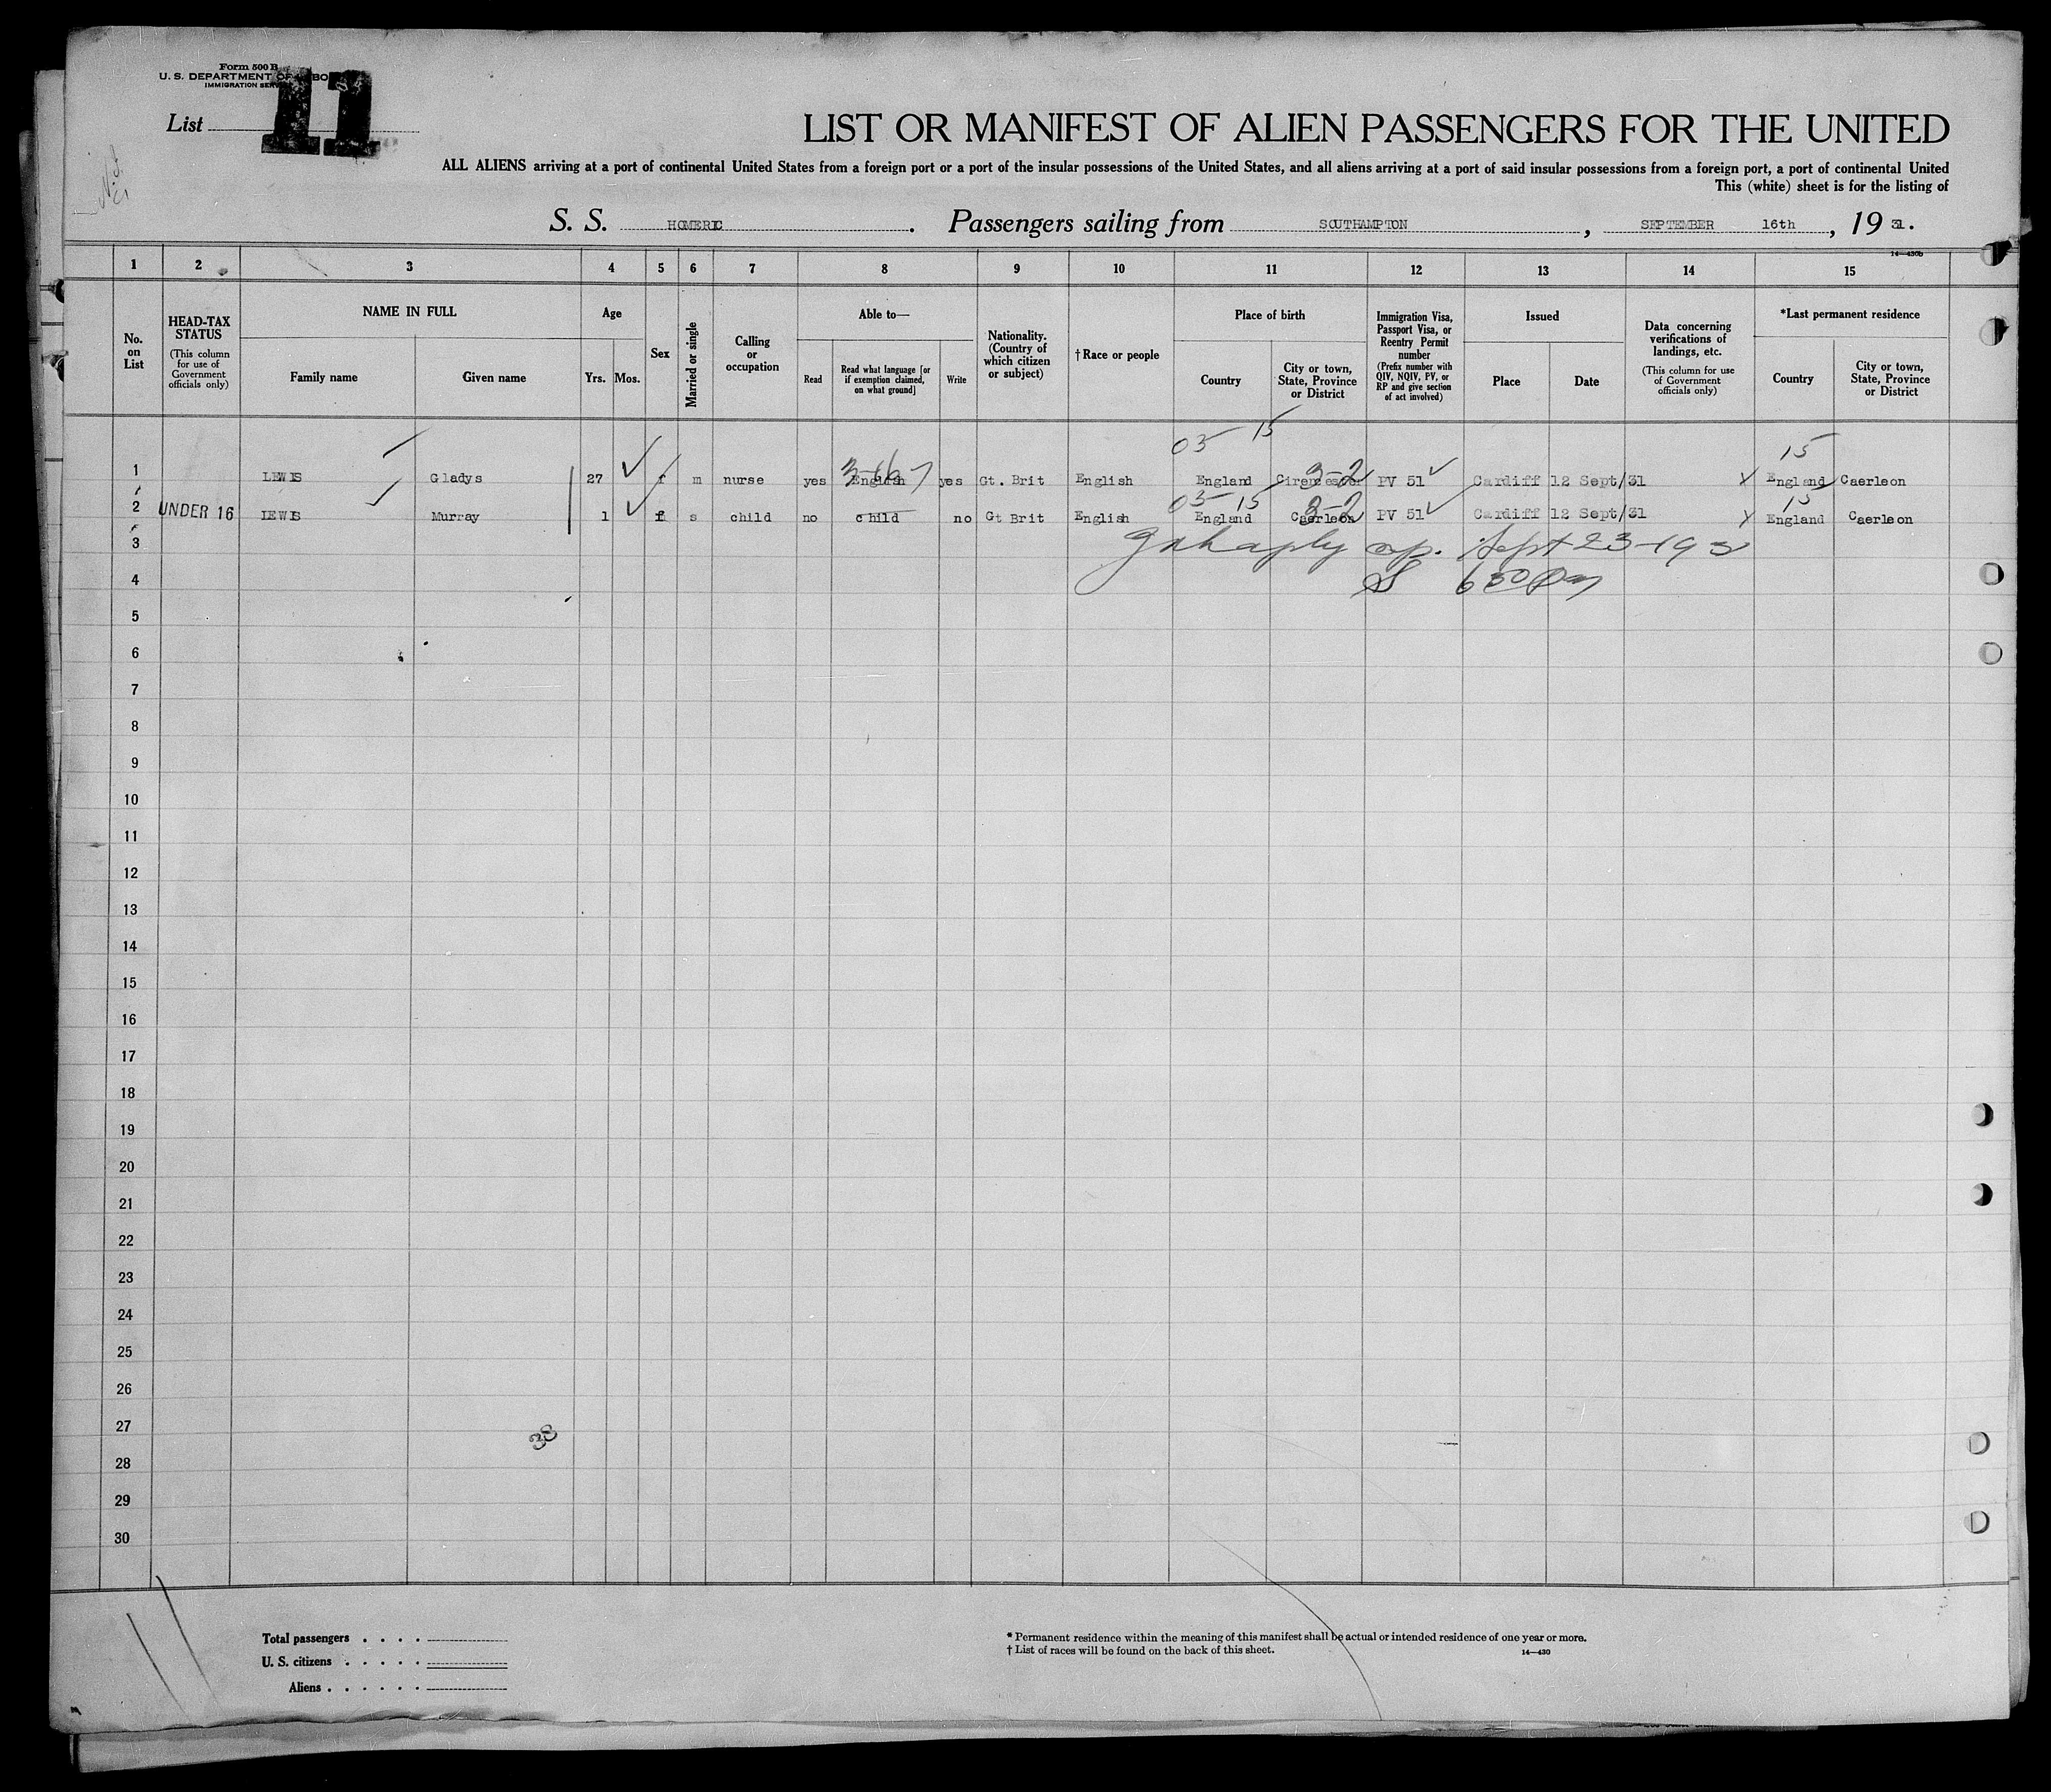 Form 500 B
U. S. DEPARTMENT OF LABOR
IMMIGRATION SERVICE
List 11
LIST OR MANIFEST OF ALIEN PASSENGERS FOR THE UNITED
ALL ALIENS arriving at a port of continental United States from a foreign port or a port of the insular possessions of the United States, and all aliens arriving at a port of said insular possessions from a foreign port, a port of continental United
This (white) sheet is for the listing of
S. S. HOMERIC . Passengers sailing from SOUTHAMPTON , SEPTEMBER 16th , 19 31.
14—430b
1 2 3 4 5 6 7 8 9 10 11 12 13 14 15
No. on List
HEAD-TAX STATUS (This column for use of Government officials only)
NAME IN FULL
Family name Given name
Age
Yrs. Mos.
Sex
Married or single
Calling or occupation
Able to—
Read
Read what language [or if exemption claimed, on what ground]
Write
Nationality. (Country of which citizen or subject)
† Race or people
Place of birth
Country
City or town, State, Province or District
Immigration Visa, Passport Visa, or Reentry Permit number (Prefix number with QIV, NQIV, PV, or RP and give section of act involved)
Issued
Place Date
Data concerning verifications of landings, etc. (This column for use of Government officials only)
*Last permanent residence
Country
City or town, State, Province or District
03 15 15
1 LEWIS Gladys 27 f m nurse yes English yes Gt. Brit English England 3-2 PV 51 Cardiff 12 Sept/31 England Caerleon
03 15 15
2 UNDER 16 LEWIS Murray 1 s child no child no Gt Brit English England Caerleon 3-2 PV 51 Cardiff 12 Sept/31 England Caerleon
3 Sept 23-193
4 630 Pm
5
6
7
8
9
10
11
12
13
14
15
16
17
18
19
20
21
22
23
24
25
26
27
38
28
29
30
Total passengers . . . .
U. S. citizens . . . . .
Aliens . . . . . .
* Permanent residence within the meaning of this manifest shall be actual or intended residence of one year or more.
† List of races will be found on the back of this sheet. 14—430